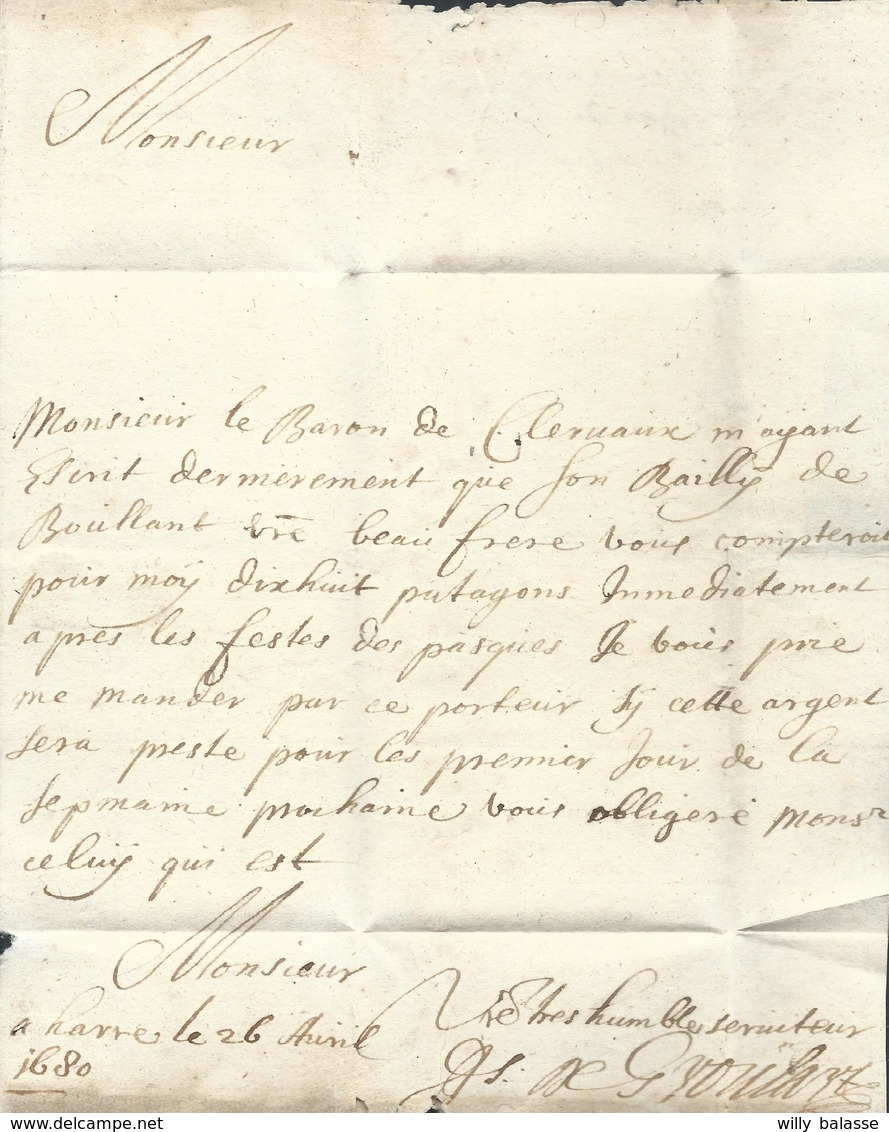 Monsieur
Monsieur le Baron de Clervaux m'ayant
Escrit dernierement que son Bailly de
Boullant vre beau frere vous compteroit
pour moy dixhuit patagons Immediatement
apres les festes des pasques Je vous prie
me mander par ce porteur sy cette argent
sera preste pour les premier Jour de la
sepmaine prochaine vous obligeré Monsr
celuy qui est
Monsieur
a harre le 26 Avril
1680
Vre tres humble serviteur
de
willy balasse